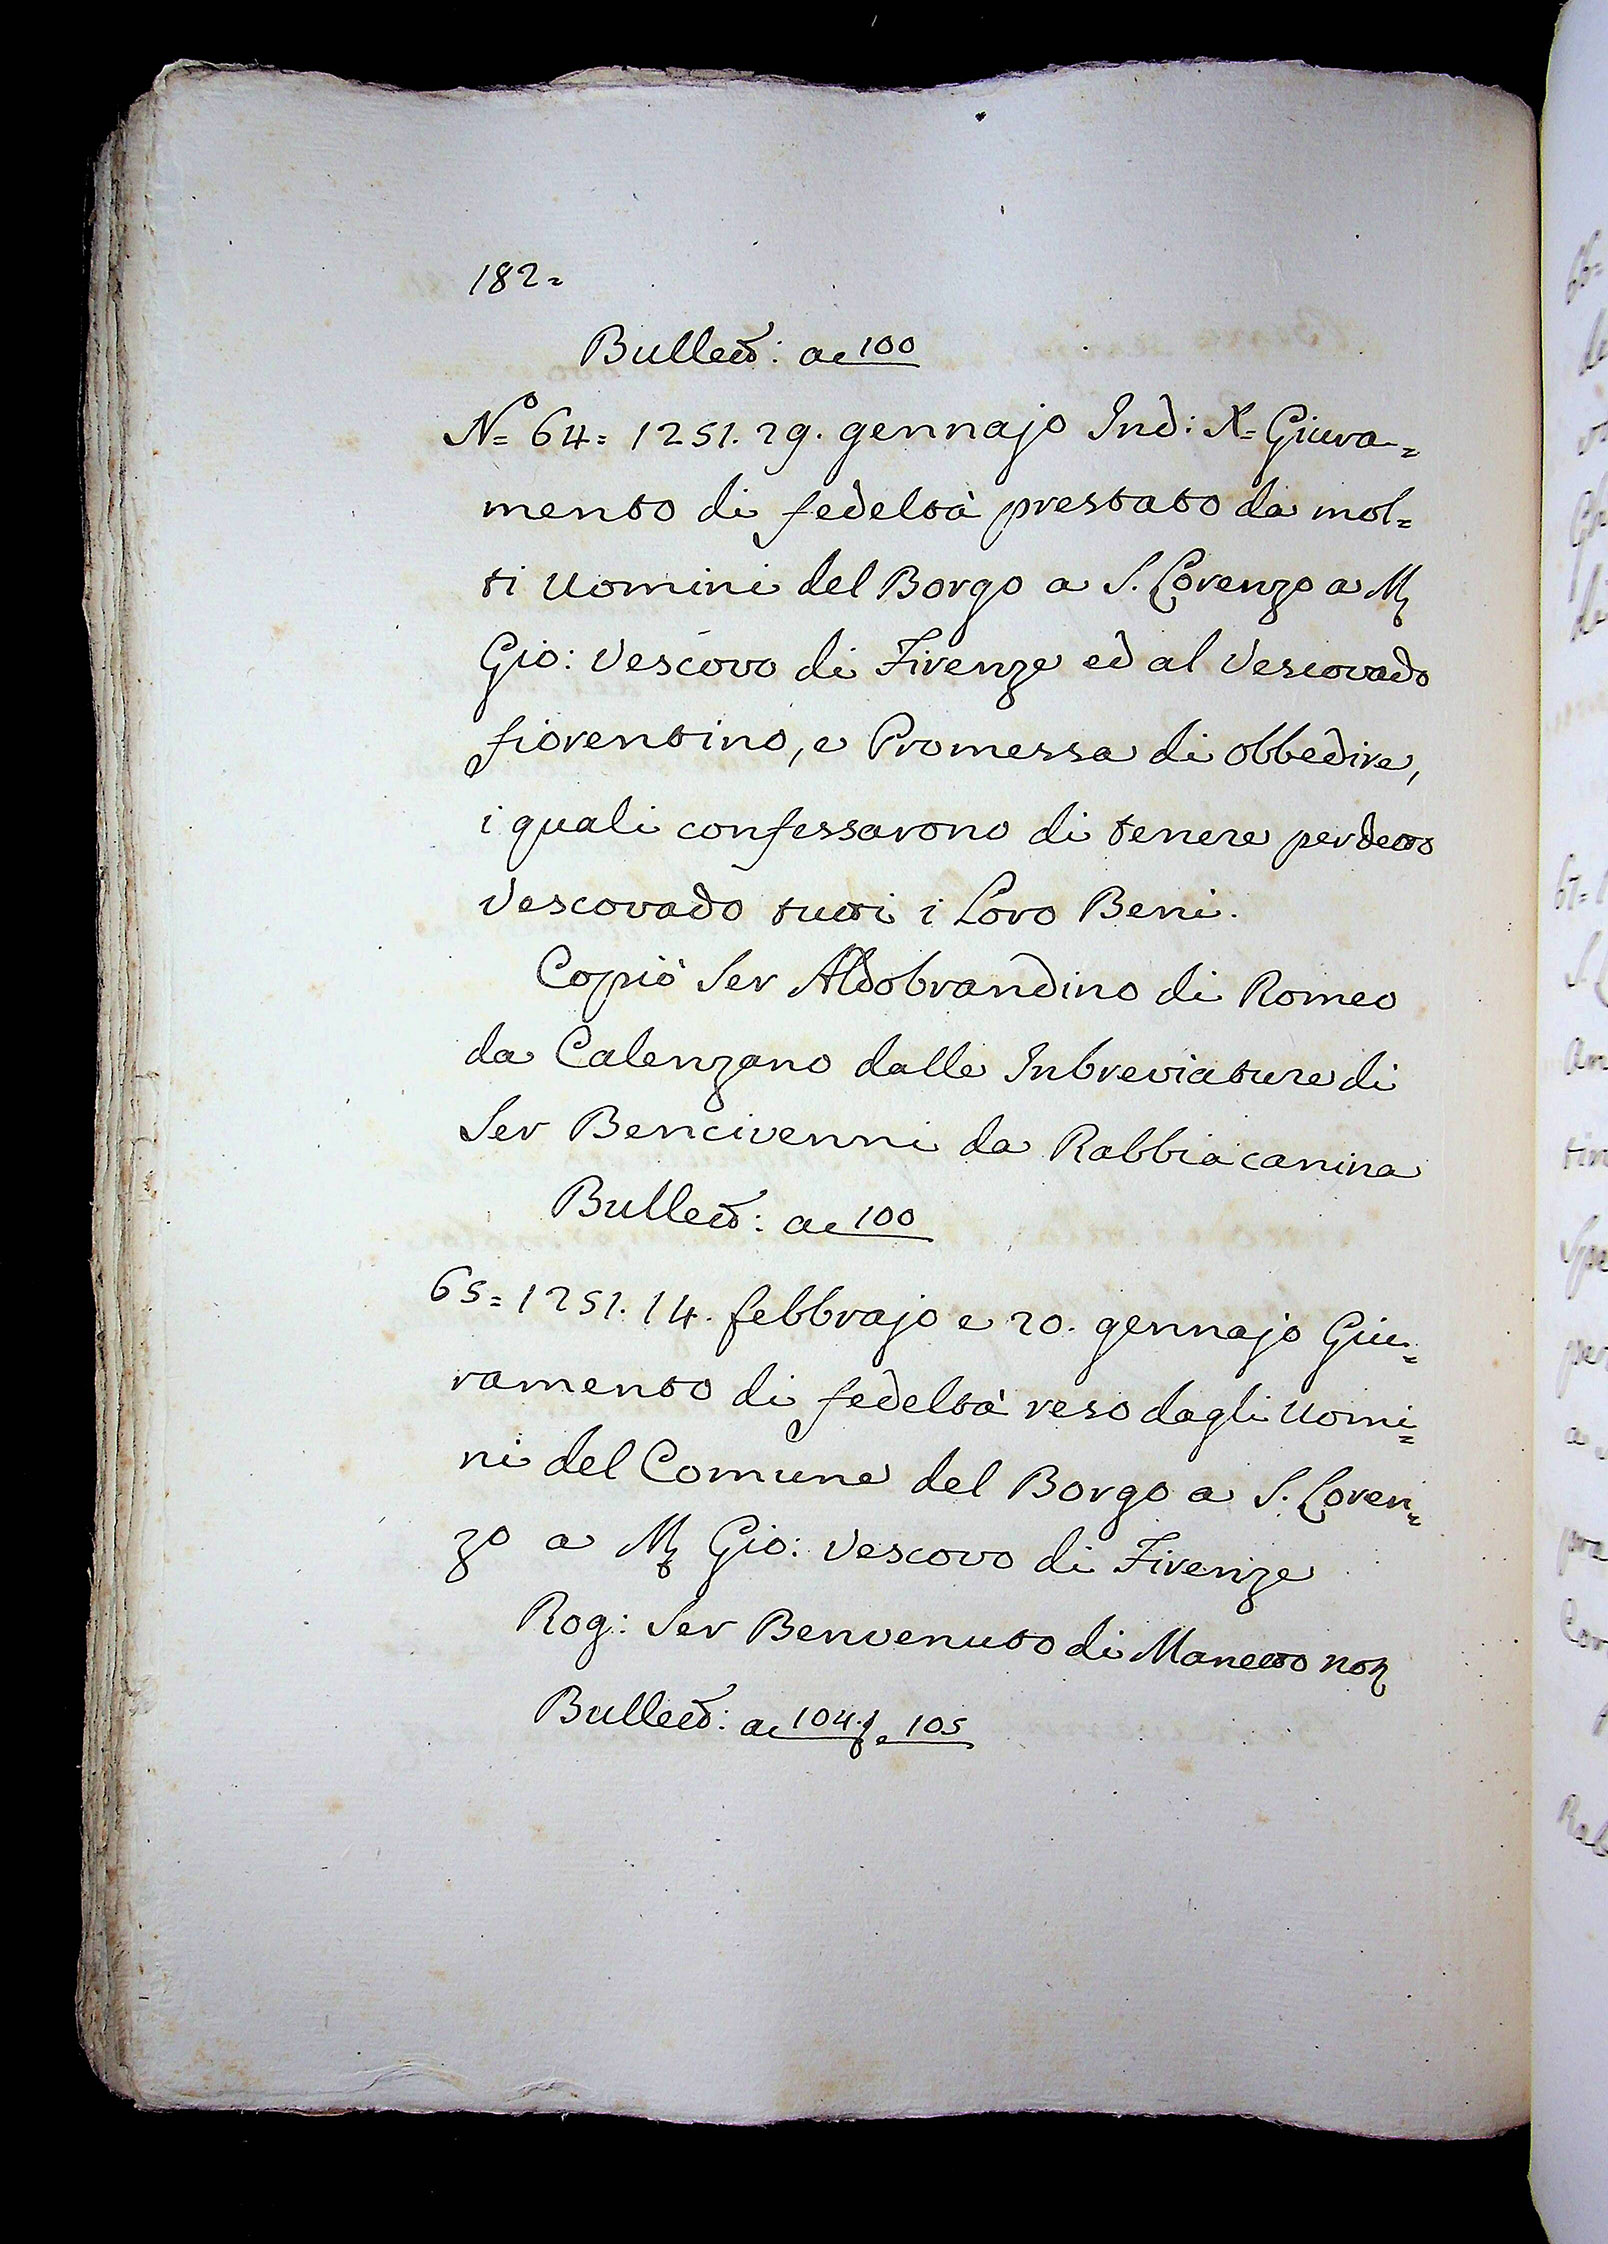 182=
Bullett: ac 100
N.o 64= 1251. 29. gennajo Ind: X= Giura=
mento di fedeltà prestato da mol=
ti Uomini del Borgo a S. Lorenzo a M
Gio: Vescovo di Firenze ed al Vescovado
fiorentino, e Promessa di obbedire,
i quali confessarono di tenere per detto
Vescovado tutti i Loro Beni.
Copiò Ser Aldobrandino di Romeo
da Calenzano dalle Inbreviature di
Ser Bencivenni da Rabbiacanina
Bullett: ac 100
65= 1251. 14. febbrajo e 20. gennajo Giu=
ramento di fedeltà reso dagli Uomi=
ni del Comune del Borgo a S. Loren=
zo a M Gio: Vescovo di Firenze
Rog: Ser Benvenuto di Manetto not
Bullett: ac 104. e 105